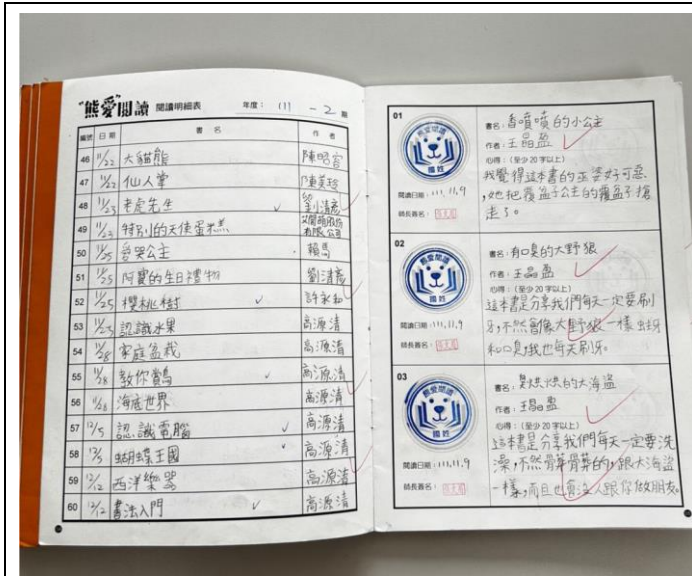 “熊愛”閱讀 閱讀明細表 年度：111 - 2 期
編號 日期 書名 作者
46 11/22 大貓熊 陳昭容
47 11/22 仙人掌 陳美玲
48 11/23 老虎先生 劉清彥
49 11/23 特別的天使蛋糕 有限公司
50 11/25 愛哭公主 賴馬
51 11/25 阿寶的生日禮物 劉清彥
52 11/25 櫻桃樹 許永和
53 11/25 認識水果 高源清
54 11/28 家庭盆栽 高源清
55 11/28 教你賞鳥 高源清
56 11/28 海底世界 高源清
57 12/5 認識電腦 高源清
58 12/5 蝴蝶王國 高源清
59 12/12 西洋樂器 高源清
60 12/12 書法入門 高源清
01
熊愛閱讀
國姓
閱讀日期：111.11.9
師長簽名：
書名：香噴噴的小公主
作者：王晶盈
心得：(至少20字以上)
我覺得這本書的巫婆好可惡，
她把覆盆子公主的覆盆子搶
走了。
02
熊愛閱讀
國姓
閱讀日期：111.11.9
師長簽名：
書名：有口臭的大野狼
作者：王晶盈
心得：(至少20字以上)
這本書是分享我們每天一定要刷
牙，不然會像大野狼一樣蛀牙
和口臭，我也每天刷牙。
03
熊愛閱讀
國姓
閱讀日期：111.11.9
師長簽名：
書名：臭烘烘的大海盜
作者：王晶盈
心得：(至少20字以上)
這本書是分享我們每天一定要洗
澡，不然會髒髒的，跟大海盜
一樣，而且也會沒人跟你做朋友。